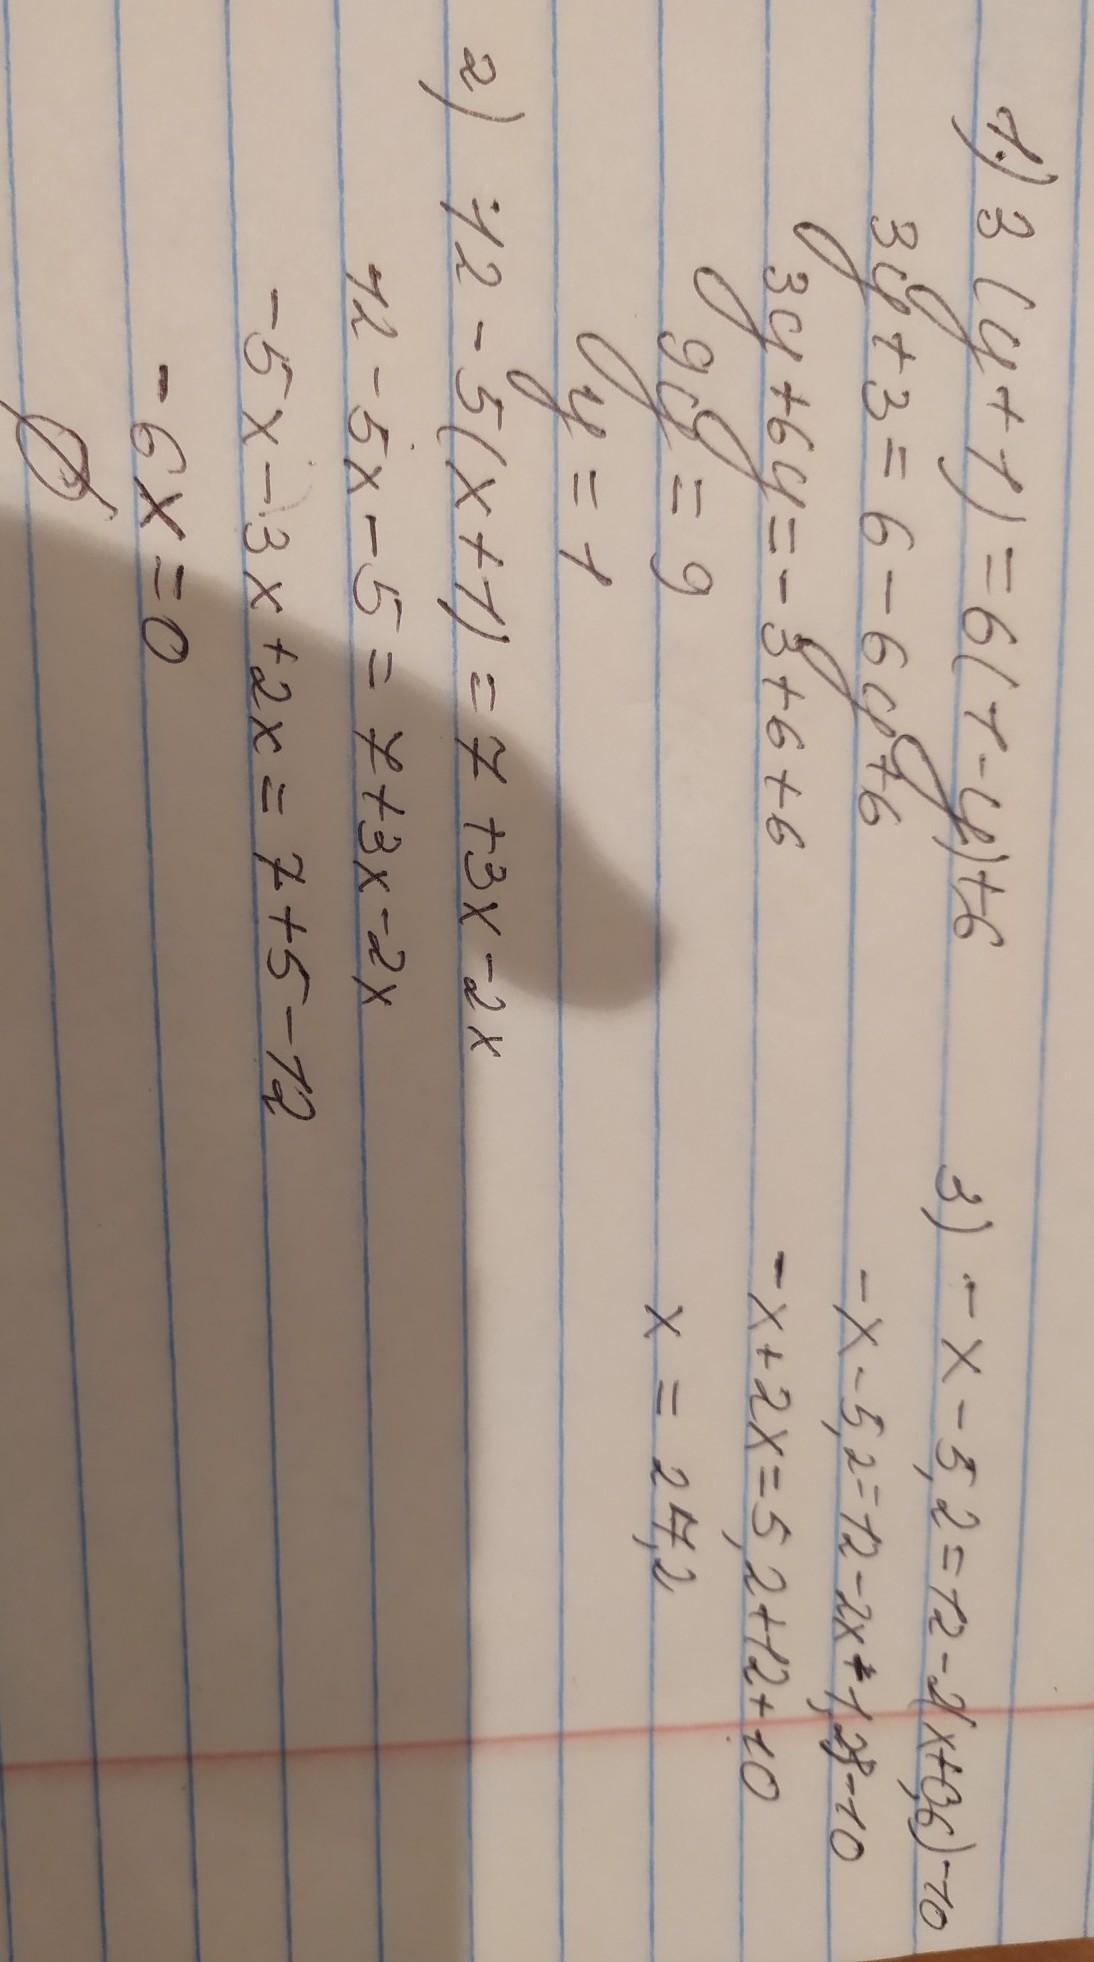 1.) 3(y+1)=6(1-y)+6
3y+3=6-6y+6
3y+6y=-3+6+6
9y=9
y=1
2) 12-5(x+1)=7+3x-2x
12-5x-5=7+3x-2x
-5x-3x+2x=7+5-12
-6x=0
Ø
3) -x-5,2=12-2(x+0,6)-10
-x+2x=5,2+12+10
x=27,2